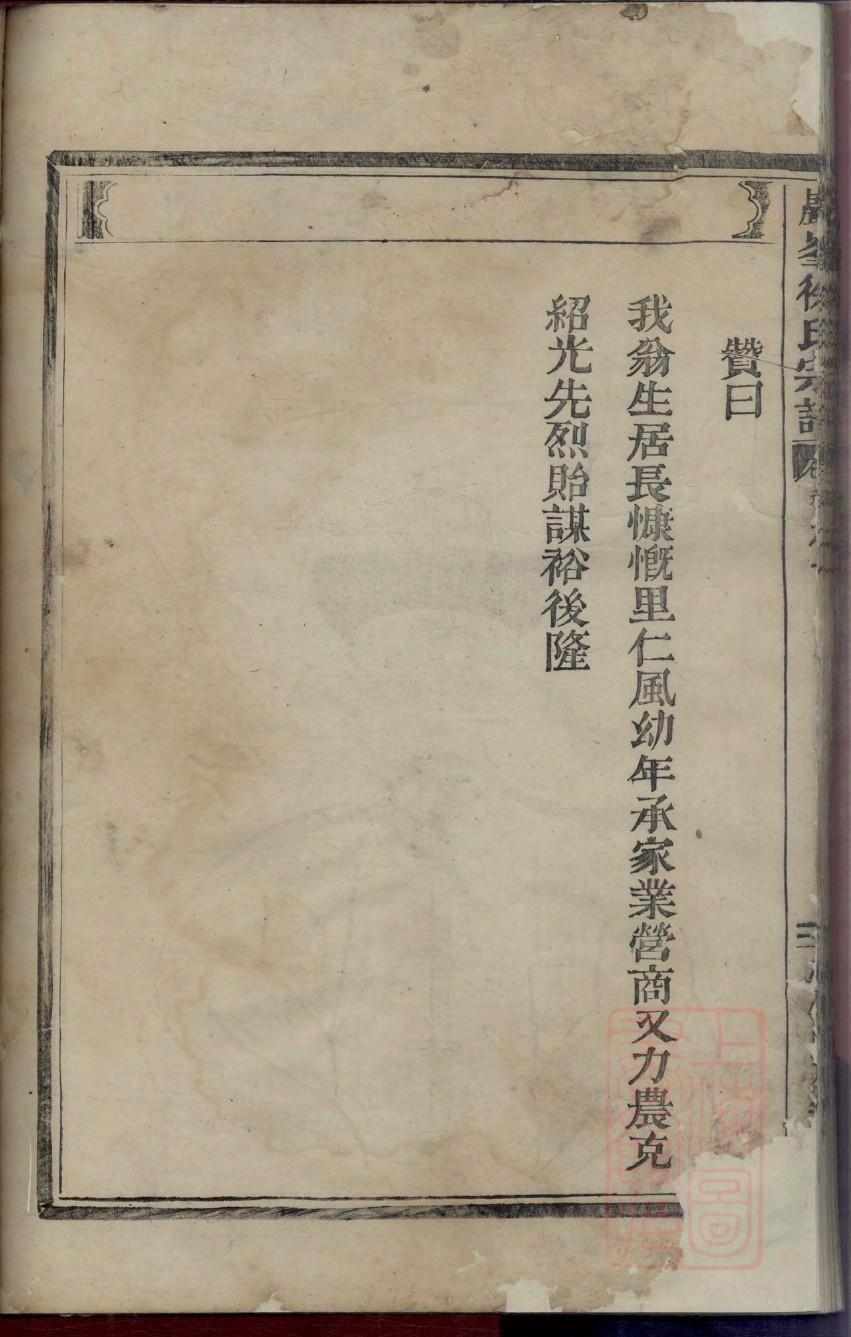 徐氏宗譜
贊曰
我翁生居長慷慨里仁風幼年承家業營商又力農克
紹光先烈貽謀裕後隆